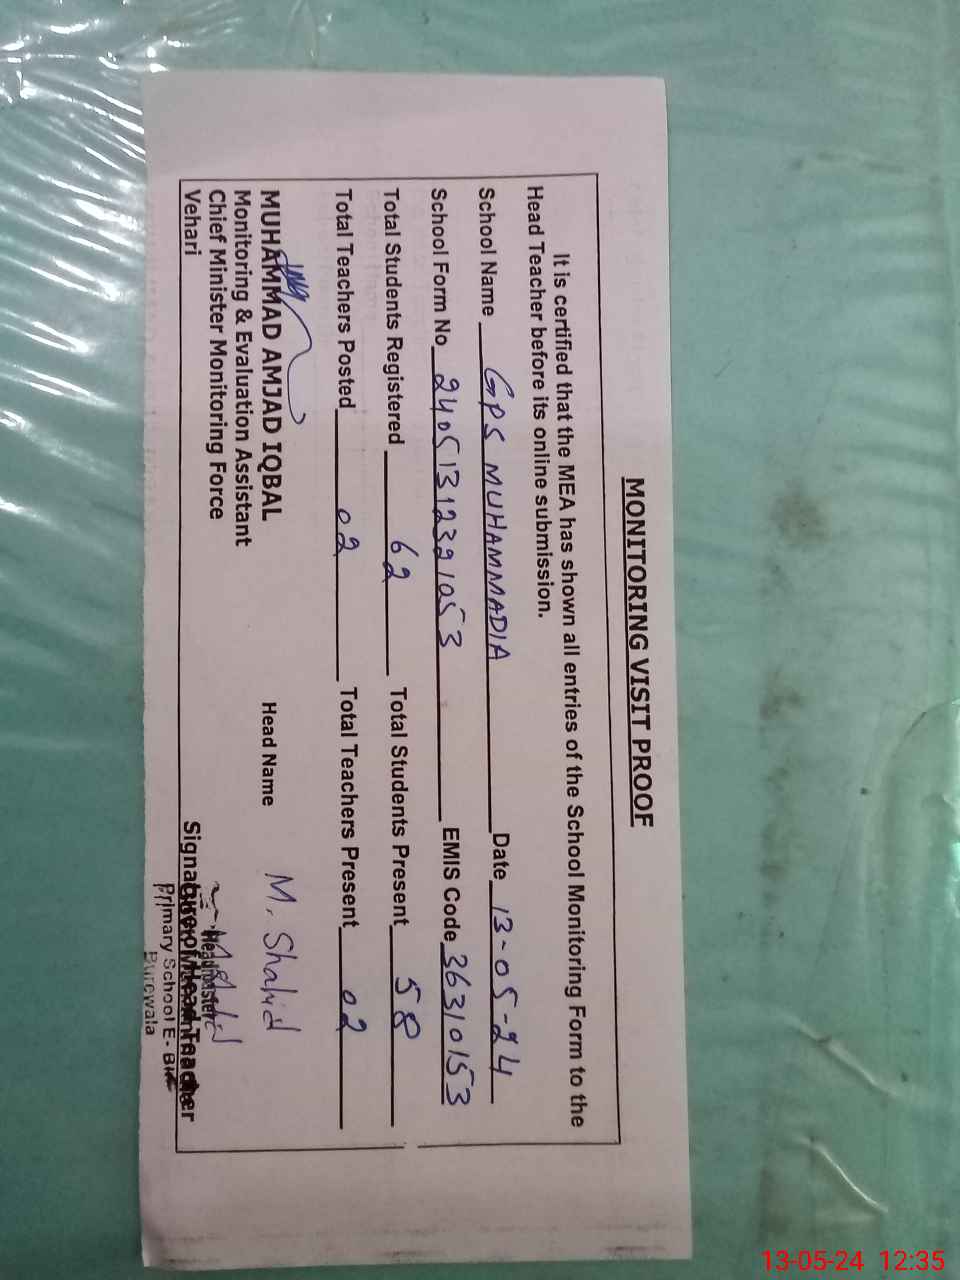 MONITORING VISIT PROOF
It is certified that the MEA has shown all entries of the School Monitoring Form to the
Head Teacher before its online submission.
School Name GPS MUHAMMADIA Date 13-05-24
School Form No 240513123921053 EMIS Code 36310153
Total Students Registered 62 Total Students Present 58
Total Teachers Posted 02 Total Teachers Present 02
MUHAMMAD AMJAD IQBAL Head Name M. Shahid
Monitoring & Evaluation Assistant
Chief Minister Monitoring Force
Headmaster
Vehari Signature of Head Teacher
Primary School E-B
Burewala
13-05-24 12:35